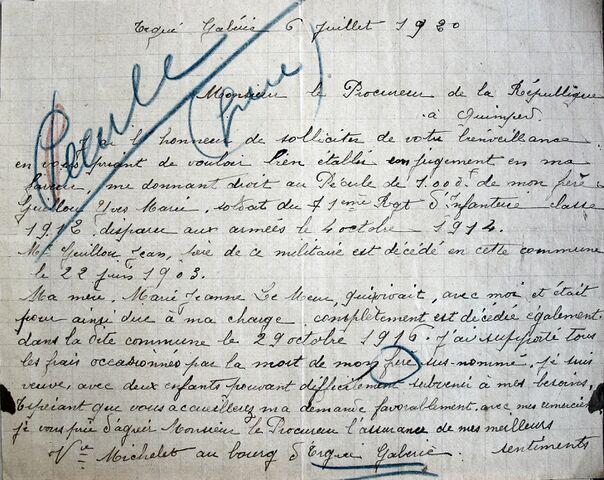 Ergué Gabéric 6 Juillet 1920
Pécule
(frère)
Monsieur le Procureur de la République
à Quimper.
J'ai l'honneur de solliciter de votre bienveillance
en vous priant de vouloir bien établir un jugement en ma
faveur, me donnant droit au Pécule de 1.000f de mon frère
Guillou Yves Marie, soldat du 71ème Rgt d'Infanterie classe
1912 disparu aux armées le 4 octobre 1914.
Mr Guillou Jean, père de ce militaire est décédé en cette commune
le 22 juin 1903.
Ma mère, Marie Jeanne Le Meur, qui vivait, avec moi et était
pour ainsi dire à ma charge complètement est décédée également
dans la dite commune le 29 octobre 1916. J'ai supporté tous
les frais occasionnés par la mort de mon frère sus-nommé. Je suis
veuve, avec deux enfants pouvant difficilement subvenir à mes besoins.
Espérant que vous accueillerez ma demande favorablement, avec mes remercie
je vous prie d'agréer Monsieur le Procureur l'assurance de mes meilleurs
sentiments
Vve Michelet au bourg d'Ergué Gabéric